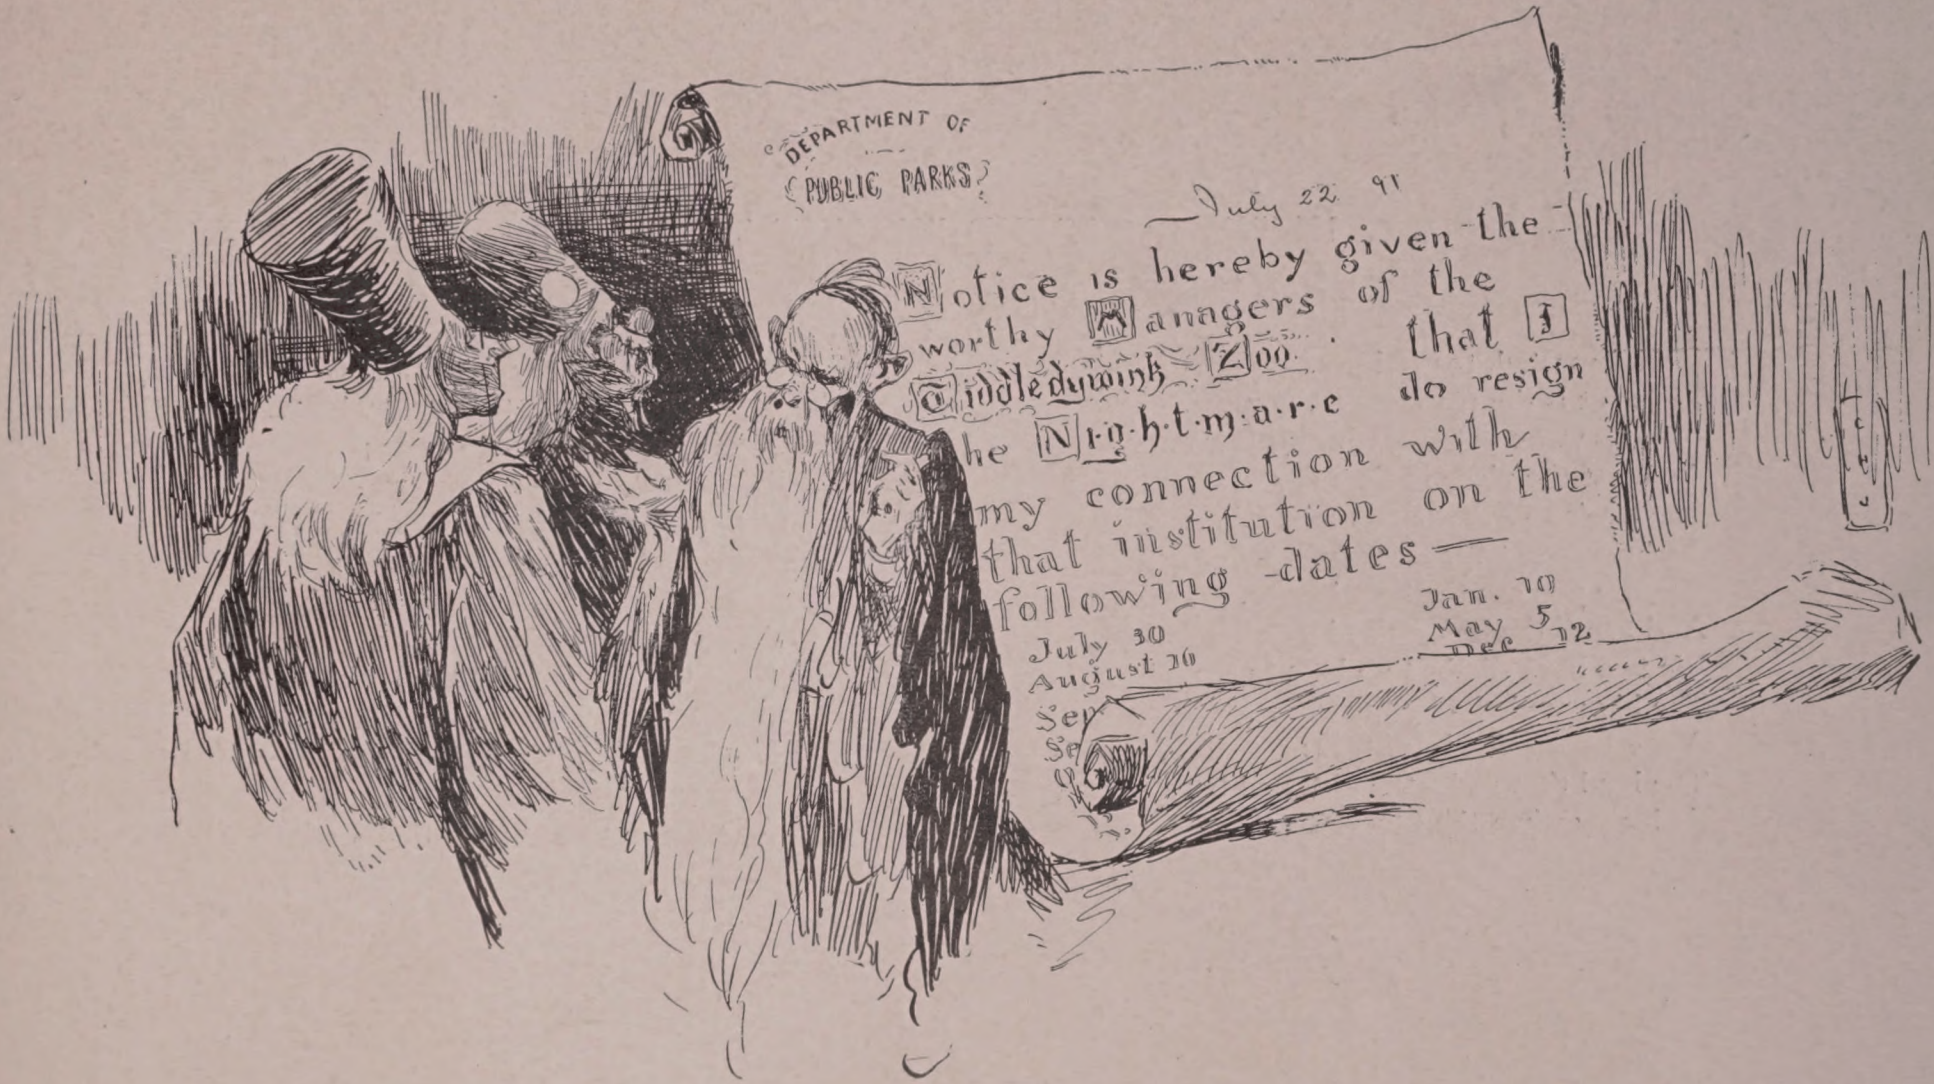 DEPARTMENT OF
PUBLIC PARKS
July 22 91
Notice is hereby given the
worthy Managers of the
Tiddledywink Zoo. that I
he N.i.g.h.t.m.a.r.e do resign
my connection with
that institution on the
following dates —
July 30
August 10
Sep
Se
Jan. 10
May 5
Dec 12